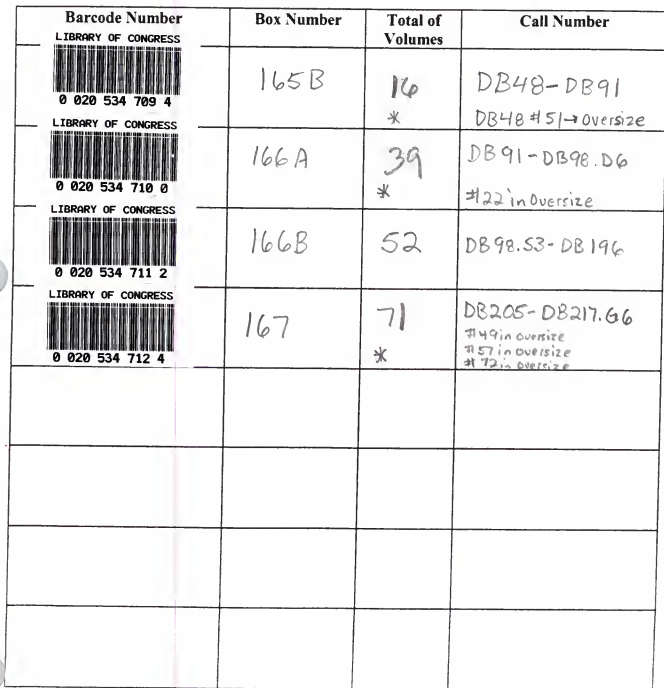 Barcode Number Box Number Total of Volumes Call Number
LIBRARY OF CONGRESS
0 020 534 709 4
165B 16 DB48-DB91
* DB48 #51→Oversize
LIBRARY OF CONGRESS
0 020 534 710 0
166A 39 DB91-DB98.D6
* #22 in Oversize
LIBRARY OF CONGRESS
0 020 534 711 2
166B 52 DB98.S3-DB196
LIBRARY OF CONGRESS
0 020 534 712 4
167 71 DB205-DB217.G6
* #49 in oversize
#57 in oversize
#72 in oversize